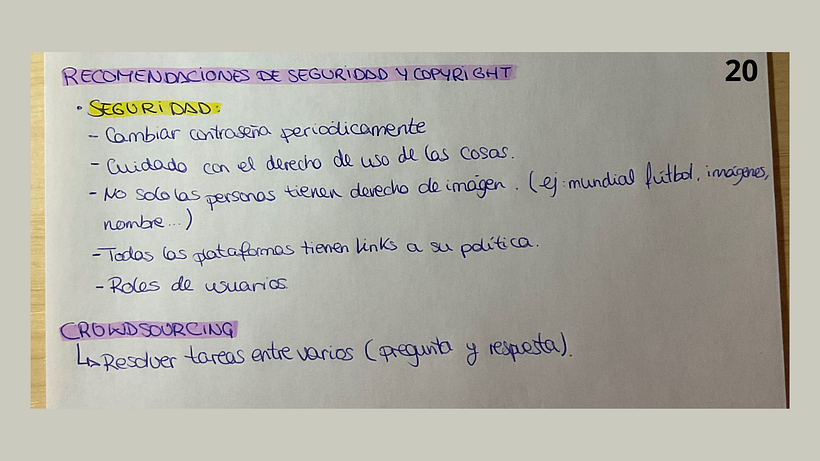 RECOMENDACIONES DE SEGURIDAD Y COPYRIGHT
20
• SEGURIDAD:
- Cambiar contraseña periodicamente
- Cuidado con el derecho de uso de las cosas.
- No solo las personas tienen derecho de imagen. (ej: mundial fútbol, imágenes,
nombre...)
- Todas las plataformas tienen links a su política.
- Roles de usuarios
CROWDSOURCING
↳ Resolver tareas entre varios (pregunta y respuesta).